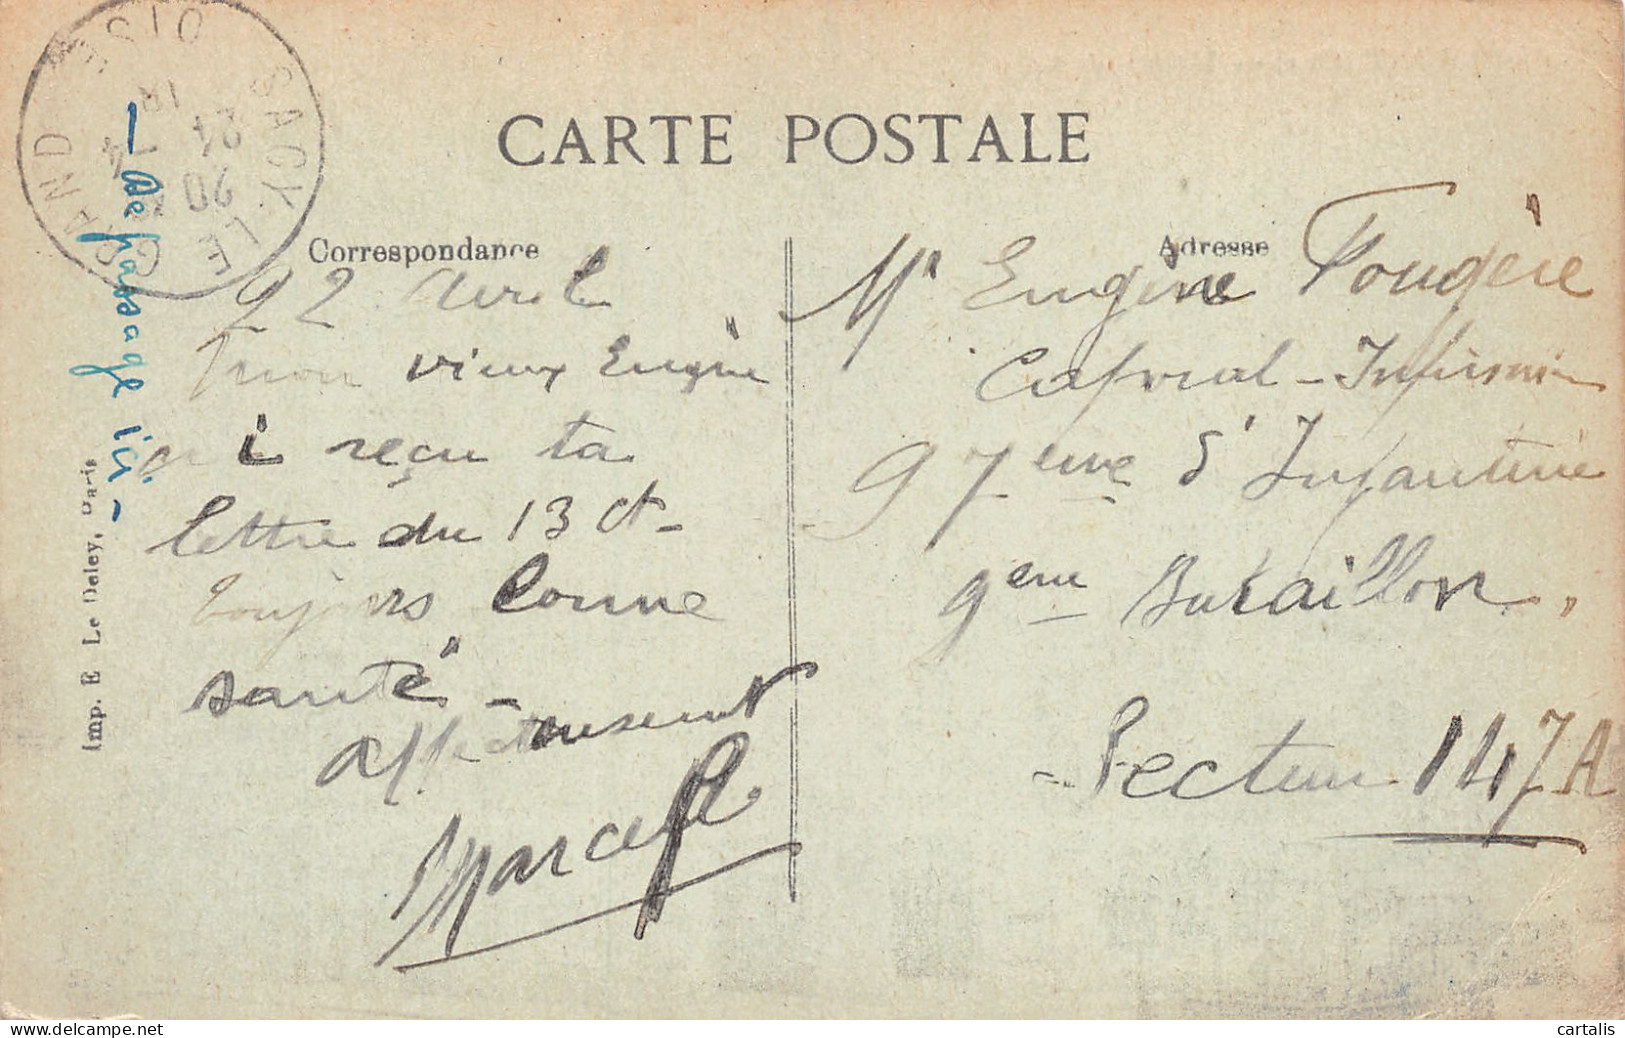 SACY-LE-GRAND OISE
CARTE POSTALE
Correspondance
Adresse
22 Avril
mon vieux Eugène
ai reçu ta
lettre du 13 ct -
toujours bonne
santé -
Affectueusement
Marcel
- De passage ici -
Imp. E. Le Deley, Paris
Mr Eugène Fougère
Caporal - Infirmier
97 eme d'Infanterie
9eme Bataillon,
- Secteur 147A
cartalis
© www.delcampe.net/fr/collections/store/cartalis